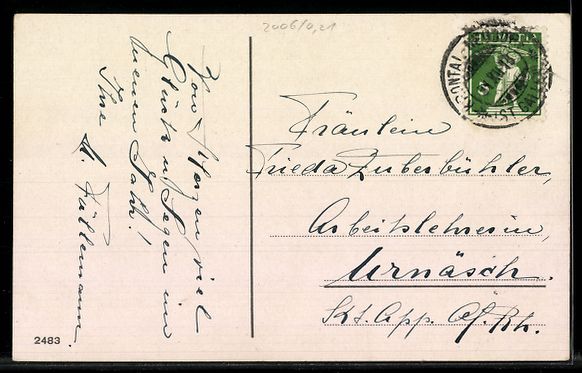 2006/0,21
Von Herzen viel
Glück u. Segen im
neuen Jahr!
Ihre
M. Füllemann.
HELVETIA
KRONTAL - ST. GALLEN
Fräulein
Frieda Zuberbühler,
Arbeitslehrerin,
Urnäsch.
Kt. App. A/Rh.
2483